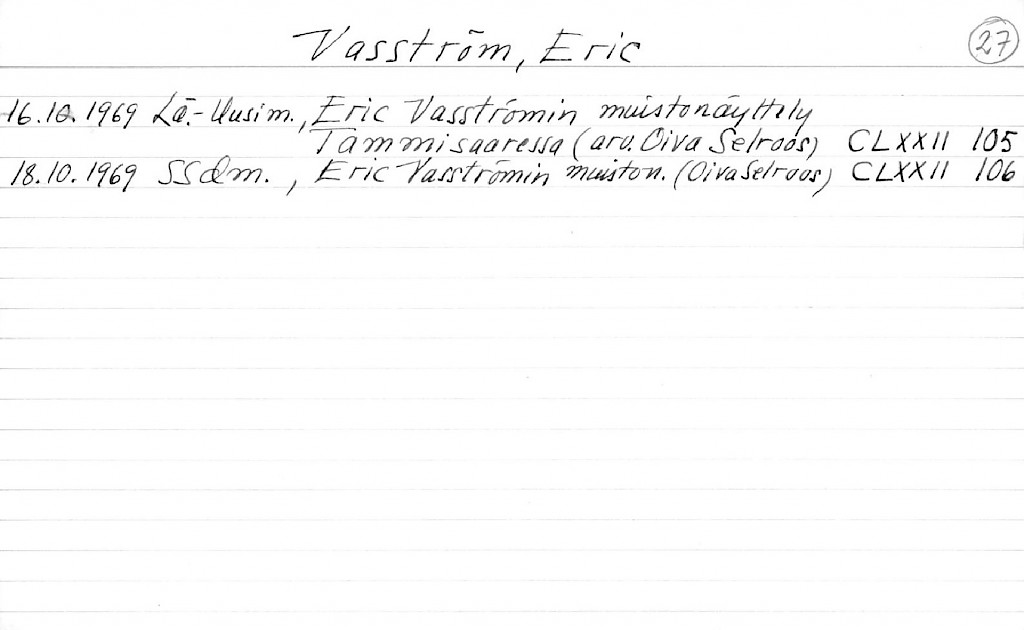 Vasström, Eric
27
16.10.1969 Lä.-Uusim., Eric Vasströmin muistonäyttely
Tammisaaressa (arv. Oiva Selroos) CLXXII 105
18.10.1969 SSdm., Eric Vasströmin muiston. (Oiva Selroos) CLXXII 106